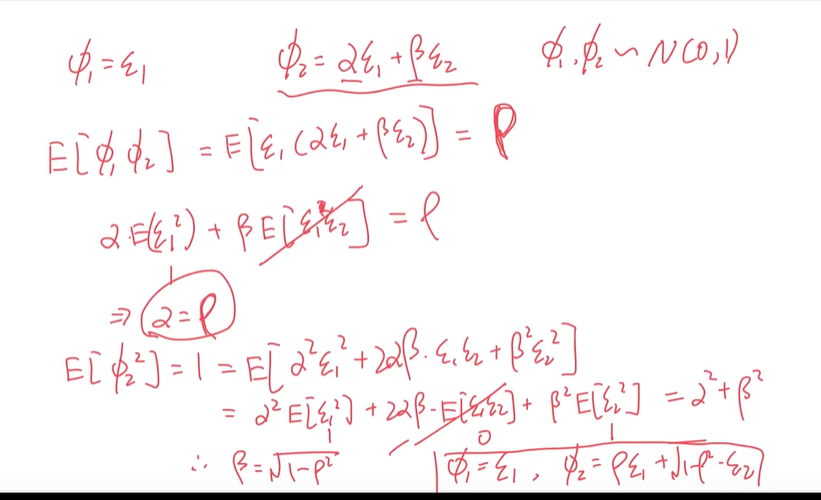 ϕ₁ = ε₁    ϕ₂ = αε₁ + βε₂    ϕ₁, ϕ₂ ∼ N(0,1)
E[ϕ₁ϕ₂] = E[ε₁(αε₁ + βε₂)] = ρ
αE(ε₁²) + βE[ε₁ε₂] = ρ
1
⇒ α = ρ
E[ϕ₂²] = 1 = E[α²ε₁² + 2αβ·ε₁ε₂ + β²ε₂²]
= α²E[ε₁²] + 2αβ·E[ε₁ε₂] + β²E[ε₂²] = α² + β²
1    0    1
∴ β = √1-ρ²    ϕ₁ = ε₁, ϕ₂ = ρε₁ + √1-ρ²·ε₂